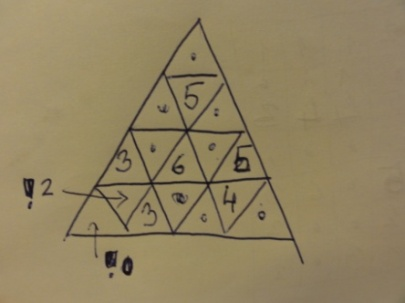 5
3 6 5
! 2
3 4
! 0